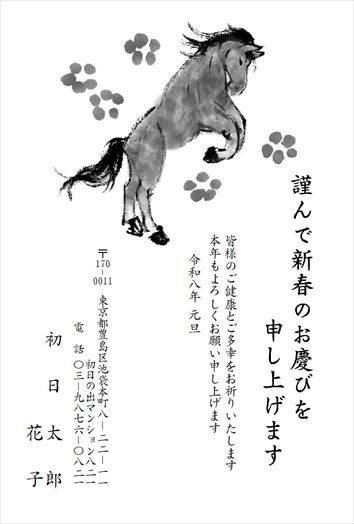 謹んで新春のお慶びを
申し上げます
皆様のご健康とご多幸をお祈りいたします
本年もよろしくお願い申し上げます
令和八年 元旦
〒170-0011
東京都豊島区池袋本町八-二二-一一
初日の出マンション八二一
電話 〇三-九八七六-〇八二一
初日 太郎
花子